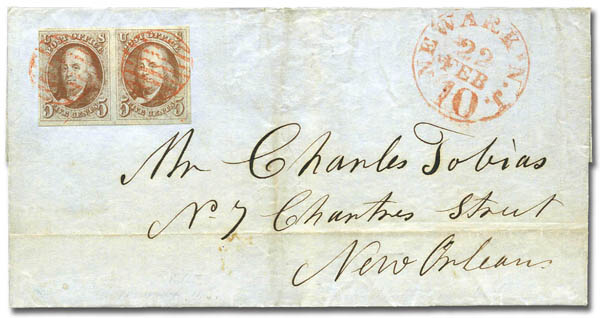 POST OFFICE POST OFFICE
5 FIVE CENTS 5 5 FIVE CENTS 5
NEWARK N.J.
22
FEB
10
Mr Charles Tobias
No 7 Chartres Street
New Orleans